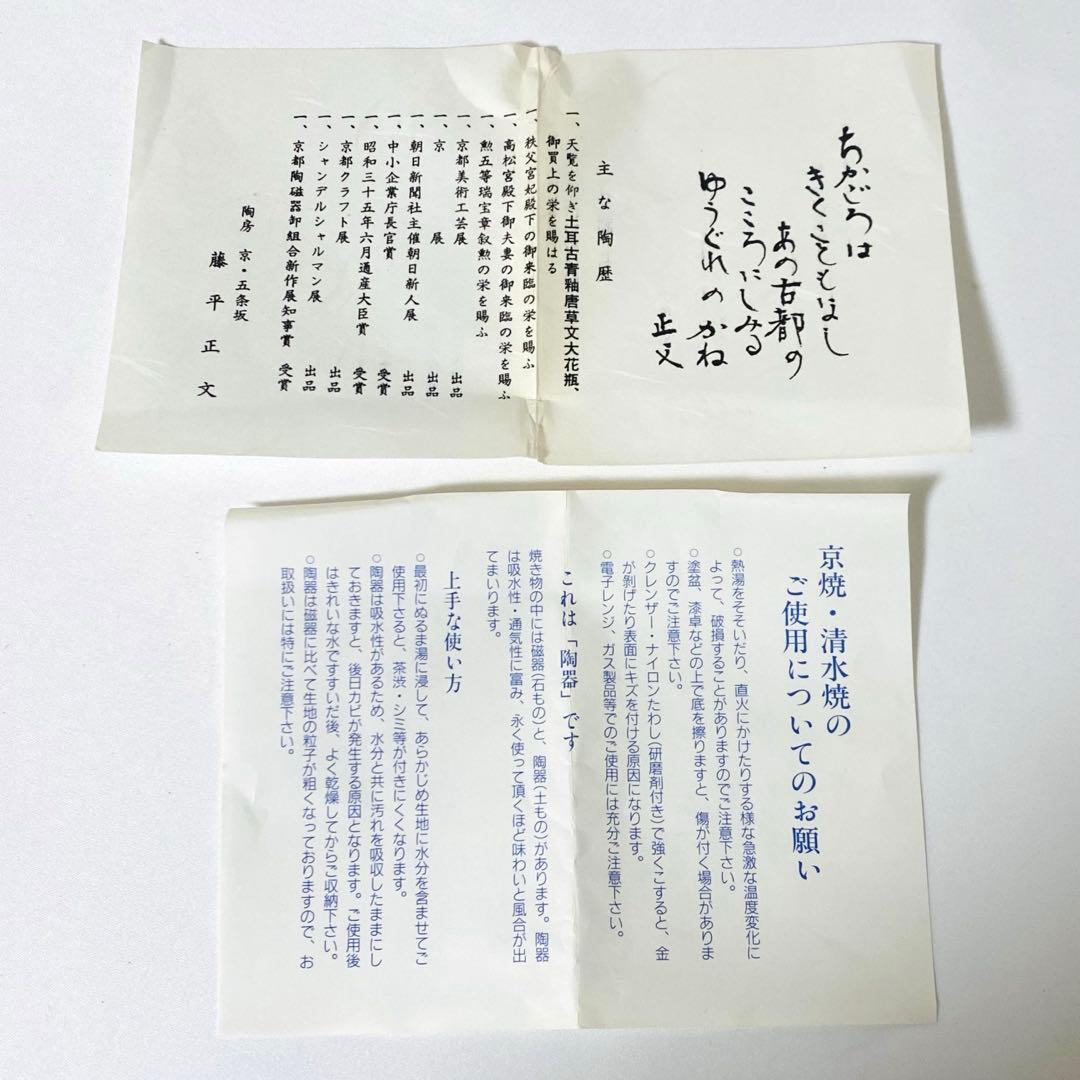 ちかごろは
きくこともなし
あの古都の
こころにしみる
ゆうぐれのかね
正文
主な陶歴
一、天覧を仰ぎ土耳古青釉唐草文大花瓶、
御買上の栄を賜はる
一、秩父宮妃殿下の御来臨の栄を賜ふ
一、高松宮殿下御夫妻の御来臨の栄を賜ふ
一、勲五等瑞宝章叙勲の栄を賜ふ
一、京都美術工芸展 出品
一、京展 出品
一、朝日新聞社主催朝日新人展 出品
一、中小企業庁長官賞 受賞
一、昭和三十五年六月通産大臣賞 受賞
一、京都クラフト展 出品
一、シャンデルシャルマン展 出品
一、京都陶磁器卸組合新作展知事賞 受賞
陶房 京・五条坂
藤平正文
京焼・清水焼の
ご使用についてのお願い
○熱湯をそそいだり、直火にかけたりする様な急激な温度変化に
よって、破損することがありますのでご注意下さい。
○塗盆、漆卓などの上で底を擦りますと、傷が付く場合がありま
すのでご注意下さい。
○クレンザー・ナイロンたわし(研磨剤付き)で強くこすると、金
が剝げたり表面にキズを付ける原因になります。
○電子レンジ、ガス製品等でのご使用には充分ご注意下さい。
これは「陶器」です
焼き物の中には磁器(石もの)と、陶器(土もの)があります。陶器
は吸水性・通気性に富み、永く使って頂くほど味わいと風合が出
てまいります。
上手な使い方
○最初にぬるま湯に浸して、あらかじめ生地に水分を含ませてご
使用下さると、茶渋・シミ等が付きにくくなります。
○陶器は吸水性があるため、水分と共に汚れを吸収したままにし
ておきますと、後日カビが発生する原因となります。ご使用後
はきれいな水ですすいだ後、よく乾燥してからご収納下さい。
○陶器は磁器に比べて生地の粒子が粗くなっておりますので、お
取扱いには特にご注意下さい。